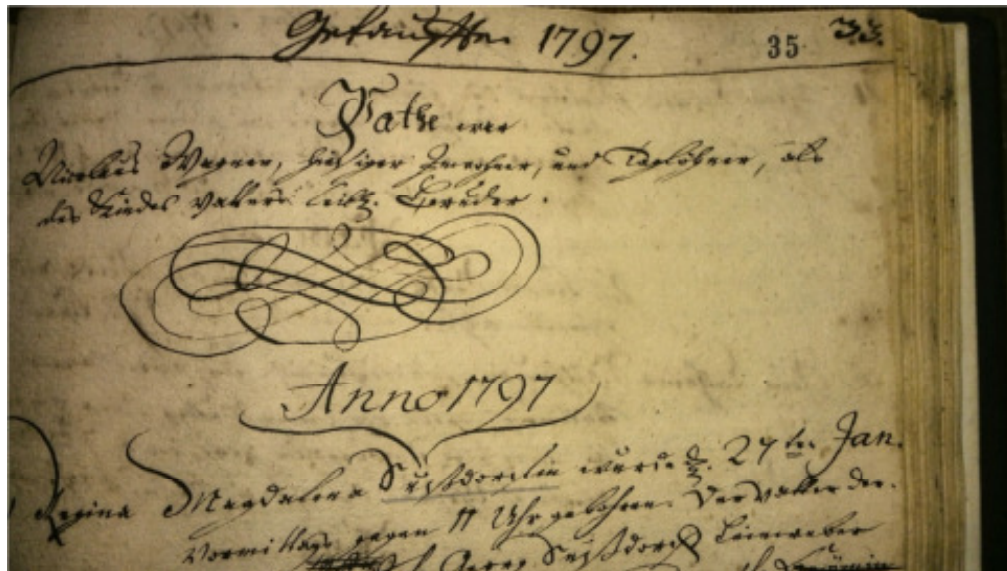 Getauffte 1797. 35 33.
Pathe war
Nicolaus Wagner, hiesiger Inwohner, und Taglöhner, als
des Kindes Vatters leibl. Bruder.
Anno 1797
Regina Magdalena Süßdorfin wurde d. 27ten Jan.
Vormittags gegen 11 Uhr gebohren. Der Vatter der-
Georg Süßdorf Leinweber